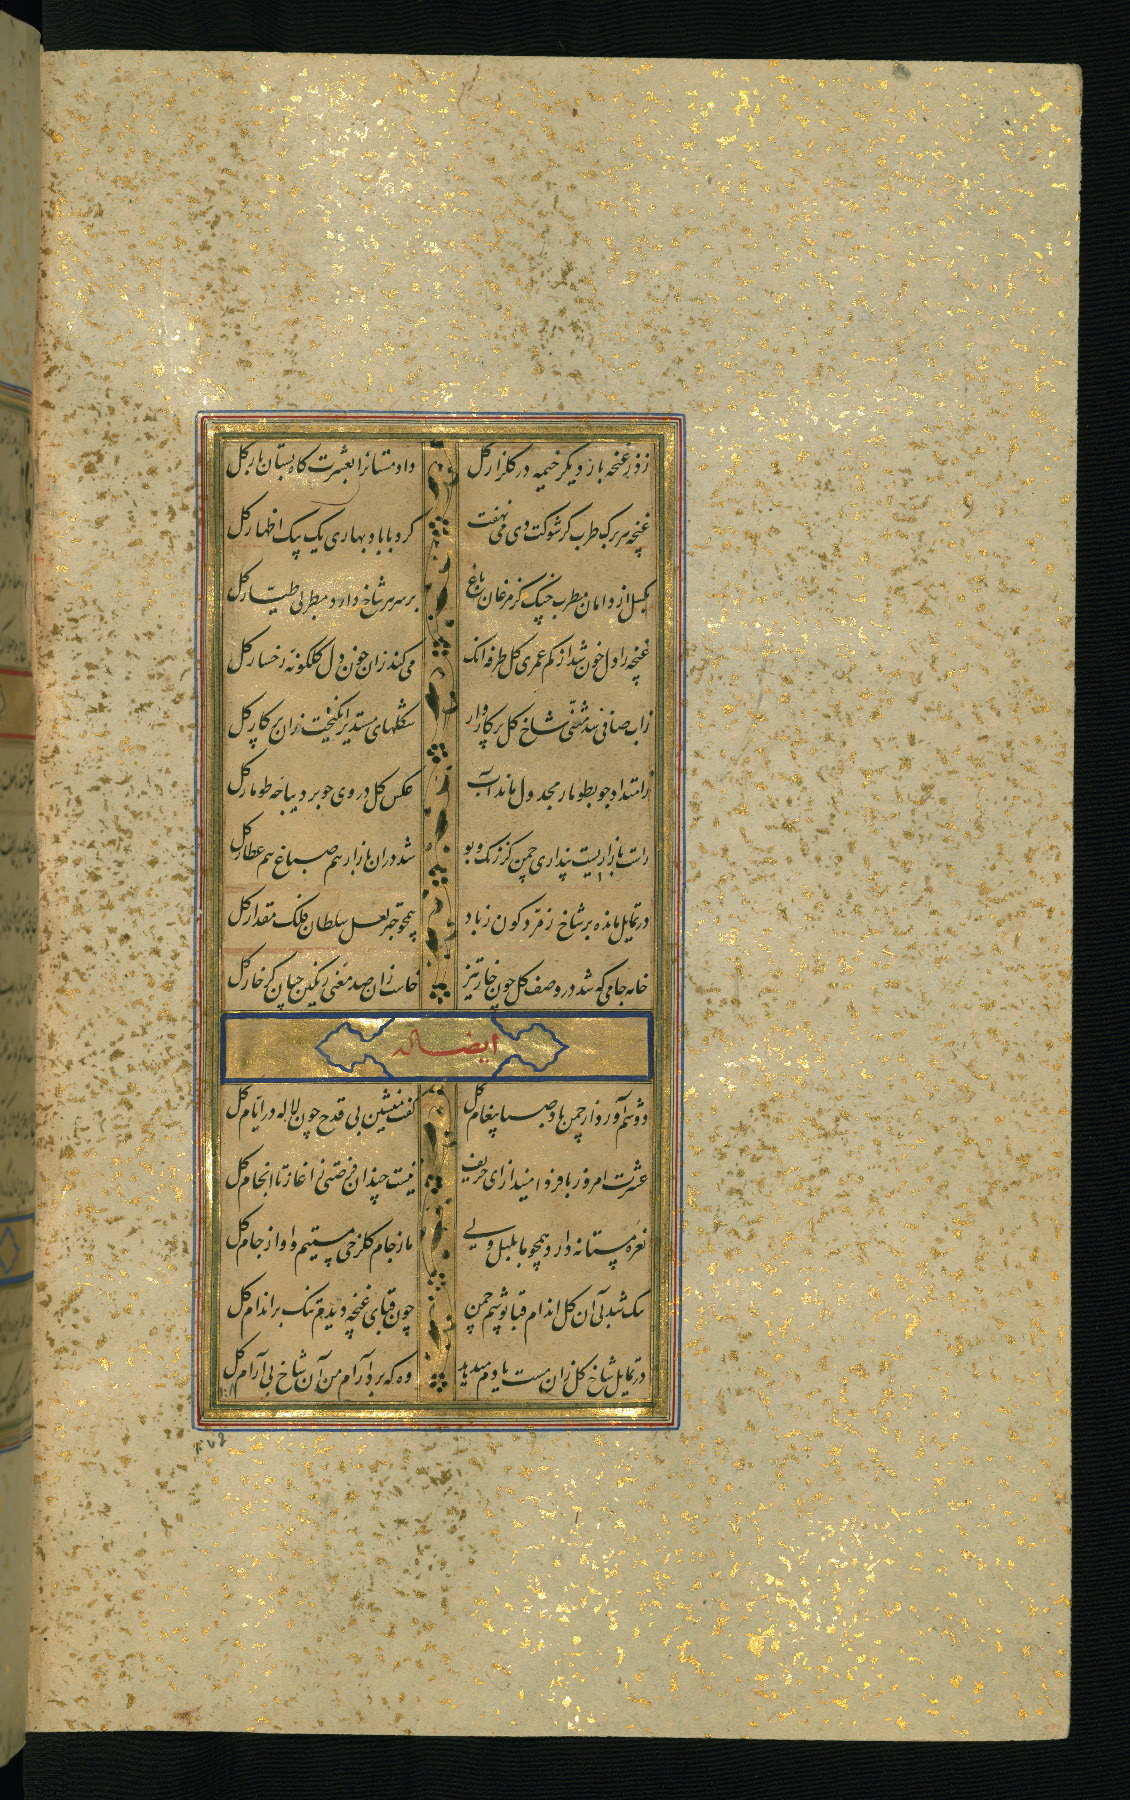 زد ز غنچه باز دیگر خیمه در گلزار گل داد مستانرا بعشرت گاه بستان بار گل
غنچه هر برگ طرب کز شوکت دی می نهفت کرد با باد بهاری یک بیک اظهار گل
بگسل از دامان مطرب چنگ کز مرغان باغ بر سر هر شاخ دارد مطربی طیار گل
غنچه را دل خون شد از کم عمری گل طرفه انک می کند زان خون دل گلگونه رخسار گل
زاب صافی شد مثنی شاخ گل پرکاروار شکلهای مستدیر انگیخت زان پرکار گل
زامتداد جو بطومار مجدول ماند آب عکس گل در وی جو بر دیباچه طومار گل
راست بازاریست پنداری چمن کز رنگ و بو شد دران بازار هم صباغ هم عطار گل
در تمایل مانده بر شاخ زمرد گون ز باد همچو تاج لعل سلطان فلک مقدار گل
خامه جامی که شد در وصف گل چون خار تیز خاست زان صد معنی رنگین چنان کز خار گل
ایضا له
دوشم آورد از چمن باد صبا پیغام گل گفت منشین بی قدح چون لاله در ایام گل
عشرت امروز با فردا میندازای حریف نیست چندان فرصتی ز آغاز تا انجام گل
نعره مستانه دارد همچو ما بلبل ولی ما ز جام گلرخی مستیم و او از جام گل
تنگ شد بی آن گل اندام قبا پوشم چمن چون قبای غنچه دیدم تنگ بر اندام گل
در تمایل شاخ گل زان مست یادم میدهد وه که برد آرام من آن شاخ بی آرام گل